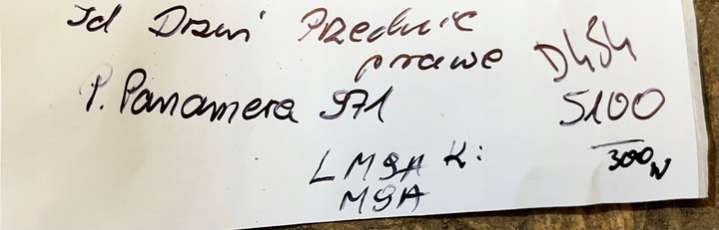 Id Drzwi Przednie
prawe D4S4
P. Panamera 971 5100
L M9A K: 300 N
M9A